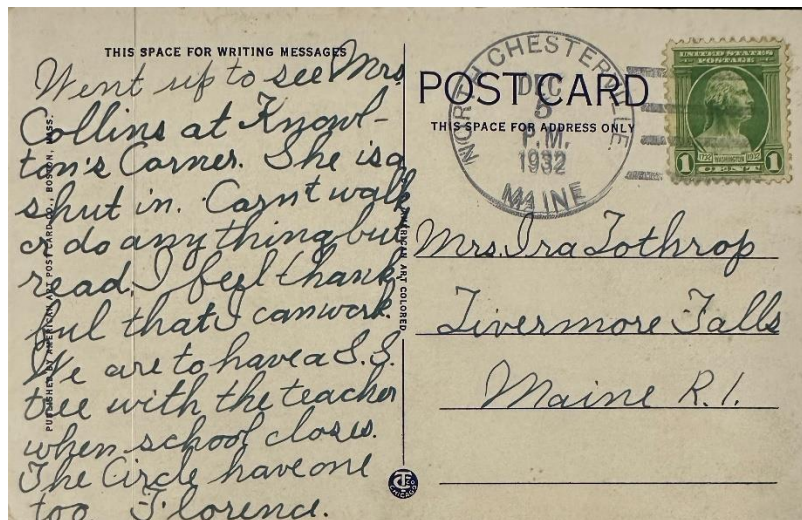 THIS SPACE FOR WRITING MESSAGES
Went up to see Mrs.
Collins at Knowl-
ton's Corner. She is a
shut in. Carnt walk
or do anything but
read. I feel thank
ful that I can work.
We are to have a S.S.
tree with the teacher
when school closes.
The Circle have one
too. Florence.
PUBLISHED BY AMERICAN ART POST CARD CO., BOSTON, MASS.
AMERICAN ART COLORED
POST CARD
THIS SPACE FOR ADDRESS ONLY
NORTH CHESTERVILLE
DEC
5
P.M.
1932
MAINE
UNITED STATES
POSTAGE
1732 WASHINGTON 1932
1 CENT 1
Mrs. Ira Lothrop
Livermore Falls
Maine R.1.
CT CO
CHICAGO